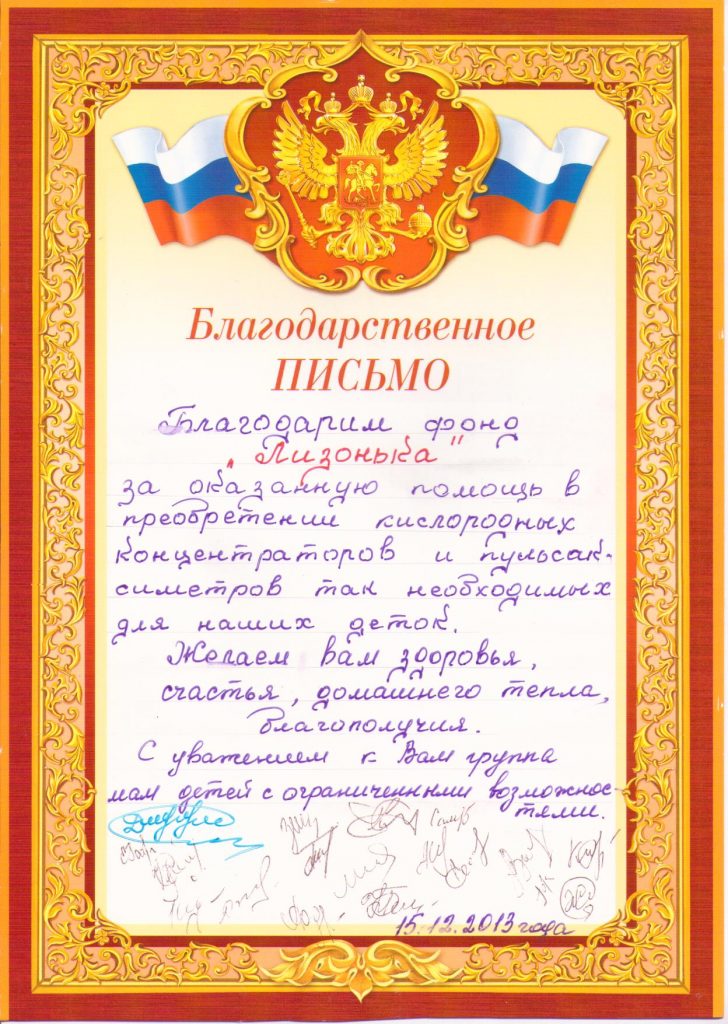 Благодарственное
ПИСЬМО
Благодарим фонд
"Лизонька"
за оказанную помощь в
преобретении кислородных
концентраторов и пульсак-
симетров так необходимых
для наших деток.
Желаем вам здоровья,
счастья, домашнего тепла,
благополучия.
С уважением к Вам группа
мам детей с ограниченными возможнос-
тями.
15.12.2013 года